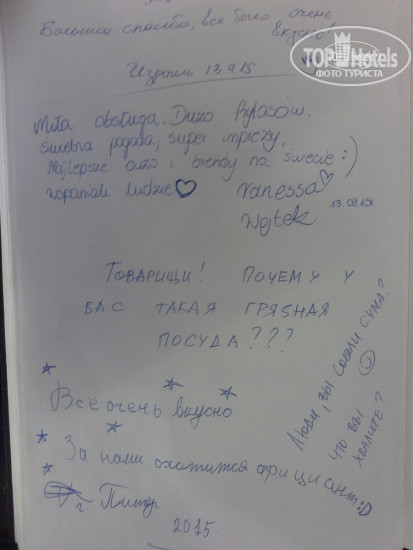 Большое спасибо, всё было очень
вкусно!
TOPHotels
ФОТО ТУРИСТА
13.9.15
Miła obsługa. Dużo
świetna pogoda, super imprezy,
Najlepsze ouzo i brendy na świecie :)
wspaniali ludzie
Vanessa
Wojtek
13.09.15r
ТОВАРИЩИ! ПОЧЕМУ У
ВАС ТАКАЯ ГРЯЗНАЯ
ПОСУДА???
Всё очень вкусно
За нами охотится официант :D
г. Питер
2015
Люди, вы сошли с ума?
что вы
хвалите?